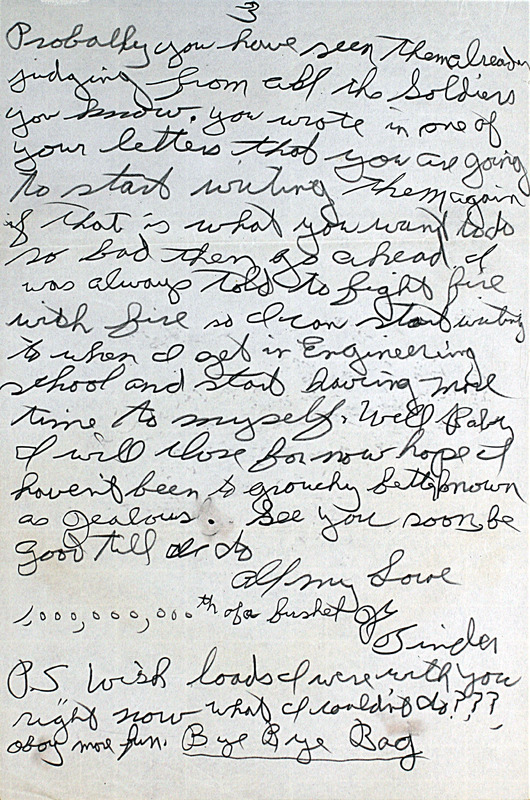 3
Probally you have seen them already
judging from all the Soldiers
you know. you wrote in one of
your letters that you are going
to start writing them again
if that is what you want to do
so bad then go ahead I
was always told to fight fire
with fire so I can start writing
to when I get in Engineering
school and start having more
time to myself. Well Baby
I will close for now hope I
haven't been to grouchy better known
as Jealous. See you soon, be
good till I do
All my Love
1,000,000,000th of a bushel of
Jinder
P.S Wish loads I were with you
right now what I couldn't do???
oboy more fun. Bye Bye Bag